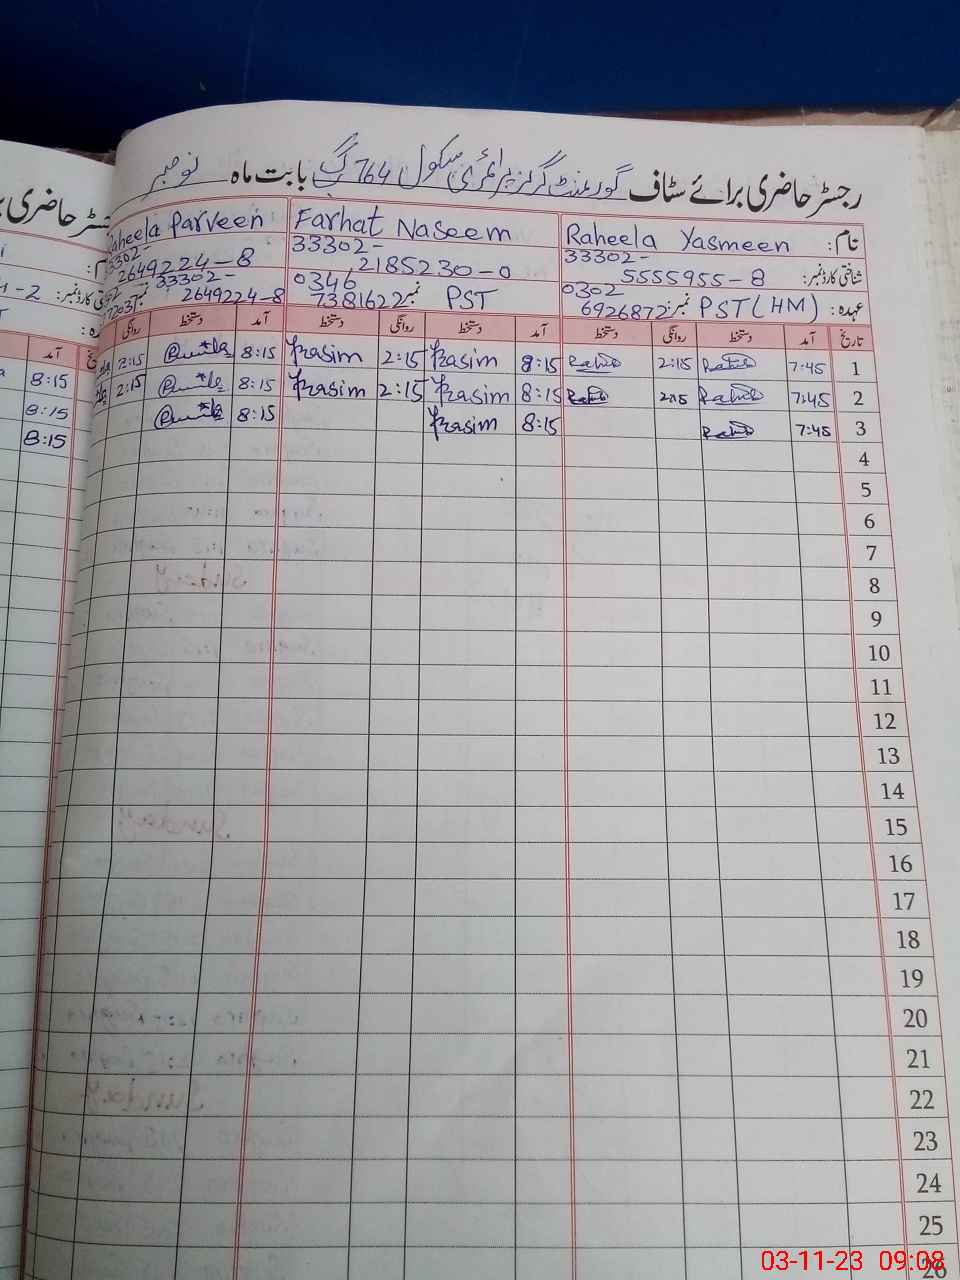 رجسٹر حاضری برائے سٹاف گورنمنٹ گرلز پرائمری سکول 764 گ ب بابت ماہ نومبر
نام: Raheela Yasmeen Farhat Naseem Raheela Parveen
شناختی کارڈ نمبر: 33302-5555955-8 33302-2185230-0 33302-2649224-8
عہدہ: PST (HM) نمبر: 0302 6926872 PST نمبر 0346 7381622 نمبر 33302-2649224-8
تاریخ آمد دستخط روانگی دستخط آمد دستخط روانگی دستخط آمد دستخط روانگی
1 7:45 2:15 8:15 Frasim 2:15 Frasim 8:15 2:15
2 7:45 2:15 8:15 Frasim 2:15 Frasim 8:15 2:15
3 7:45 8:15 Frasim 8:15
4
5
6
7
8
9
10
11
12
13
14
15
16
17
18
19
20
21
22
23
24
25
26
رجسٹر حاضری
آمد
8:15
8:15
8:15
03-11-23 09:08